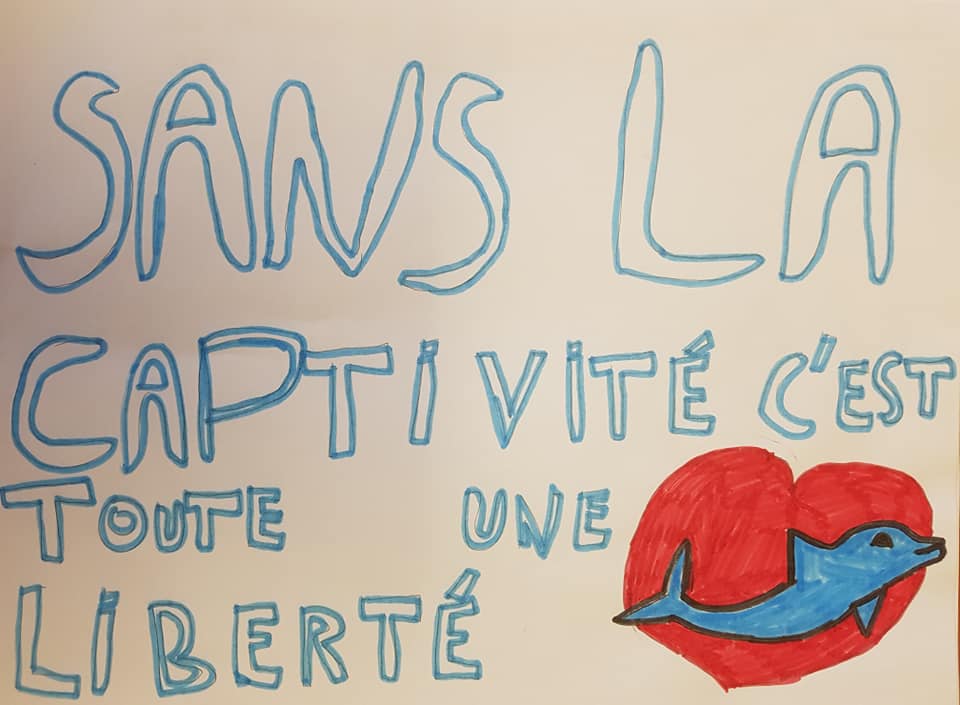 SANS LA
CAPTiViTÉ C'EST
TOUTE UNE
LiBERTÉ